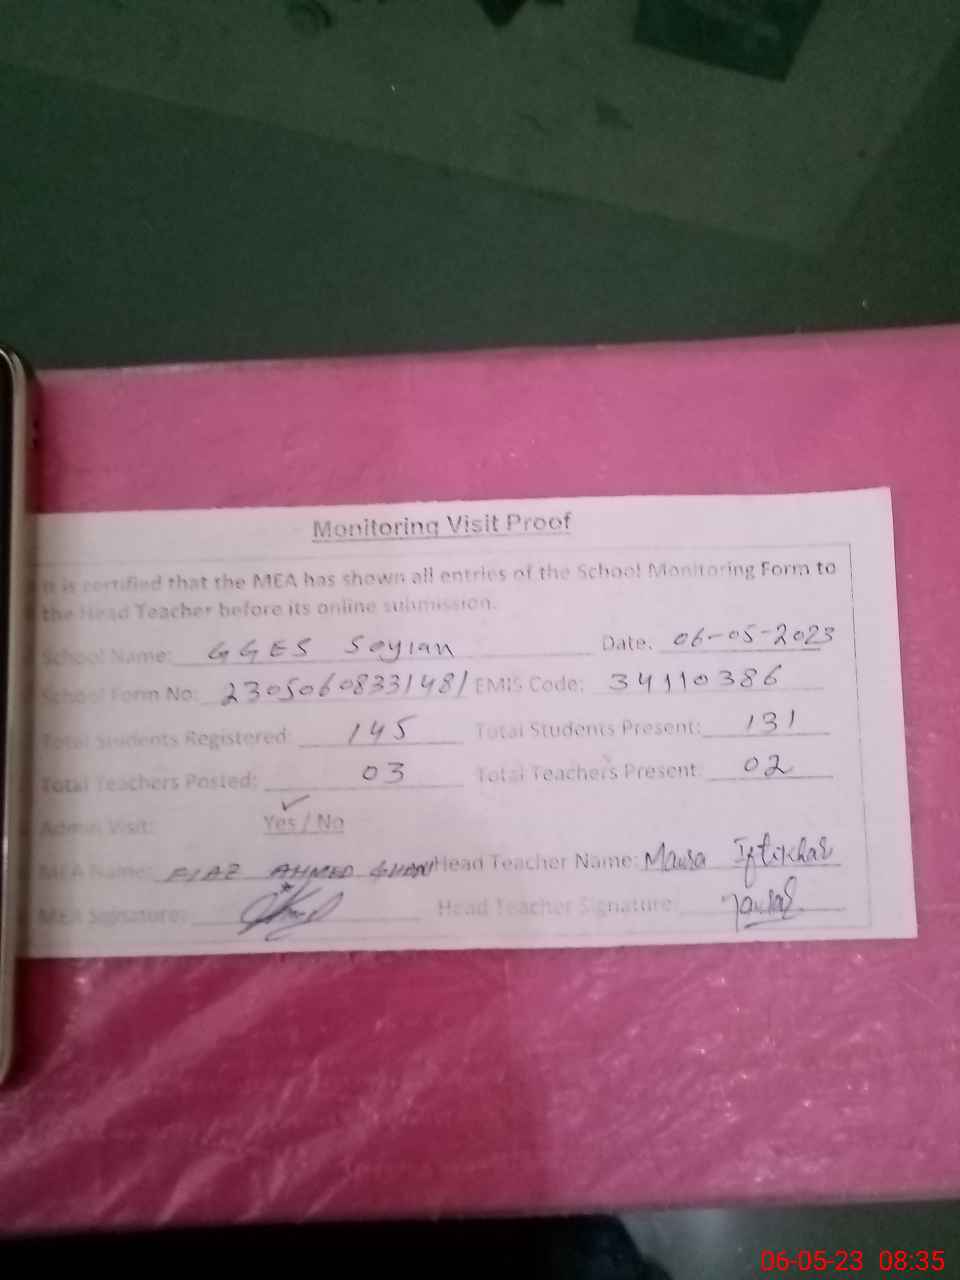 Monitoring Visit Proof
It is certified that the MEA has shown all entries of the School Monitoring Form to
the Head Teacher before its online submission.
School Name: GGES Soyian Date. 06-05-2023
School Form No: 23050608331481 EMIS Code: 34110386
Total Students Registered: 145 Total Students Present: 131
Total Teachers Posted: 03 Total Teachers Present: 02
Admin Visit: Yes / No
MEA Name: AHMED Head Teacher Name: Iftikhar
MEA Signature: Head Teacher Signature:
06-05-23 08:35